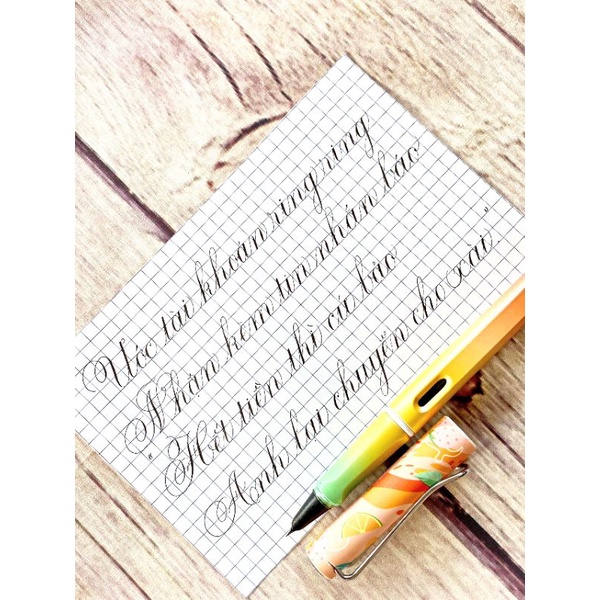 Ước tài khoản ring ring
Nhận kèm tin nhắn báo
"Hết tiền thì cứ bảo
Anh lại chuyển cho xài"